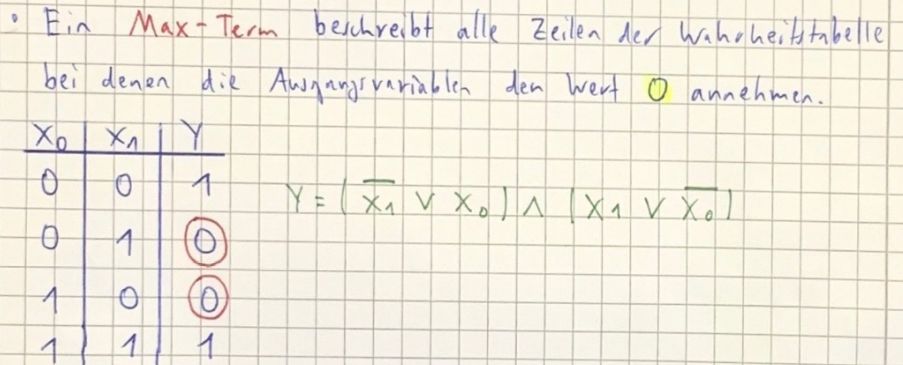 • Ein Max-Term beschreibt alle Zeilen der Wahrheitstabelle
bei denen die Ausgangsvariablen den Wert 0 annehmen.
X₀ | X₁ | Y
0 | 0 | 1
0 | 1 | 0
1 | 0 | 0
1 | 1 | 1
Y = (X̅₁ ∨ X₀) ∧ (X₁ ∨ X̅₀)